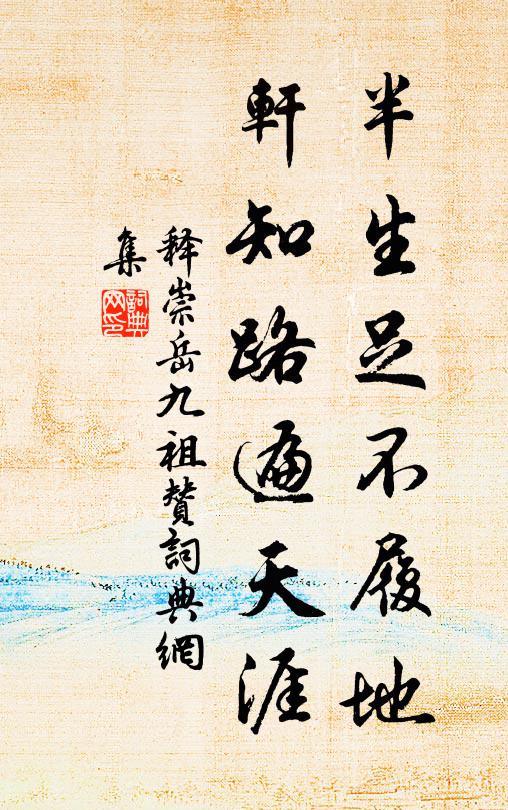 半生足不履地
軒知路遍天涯
释崇岳九祖贊詞典網
集
詞典
网印